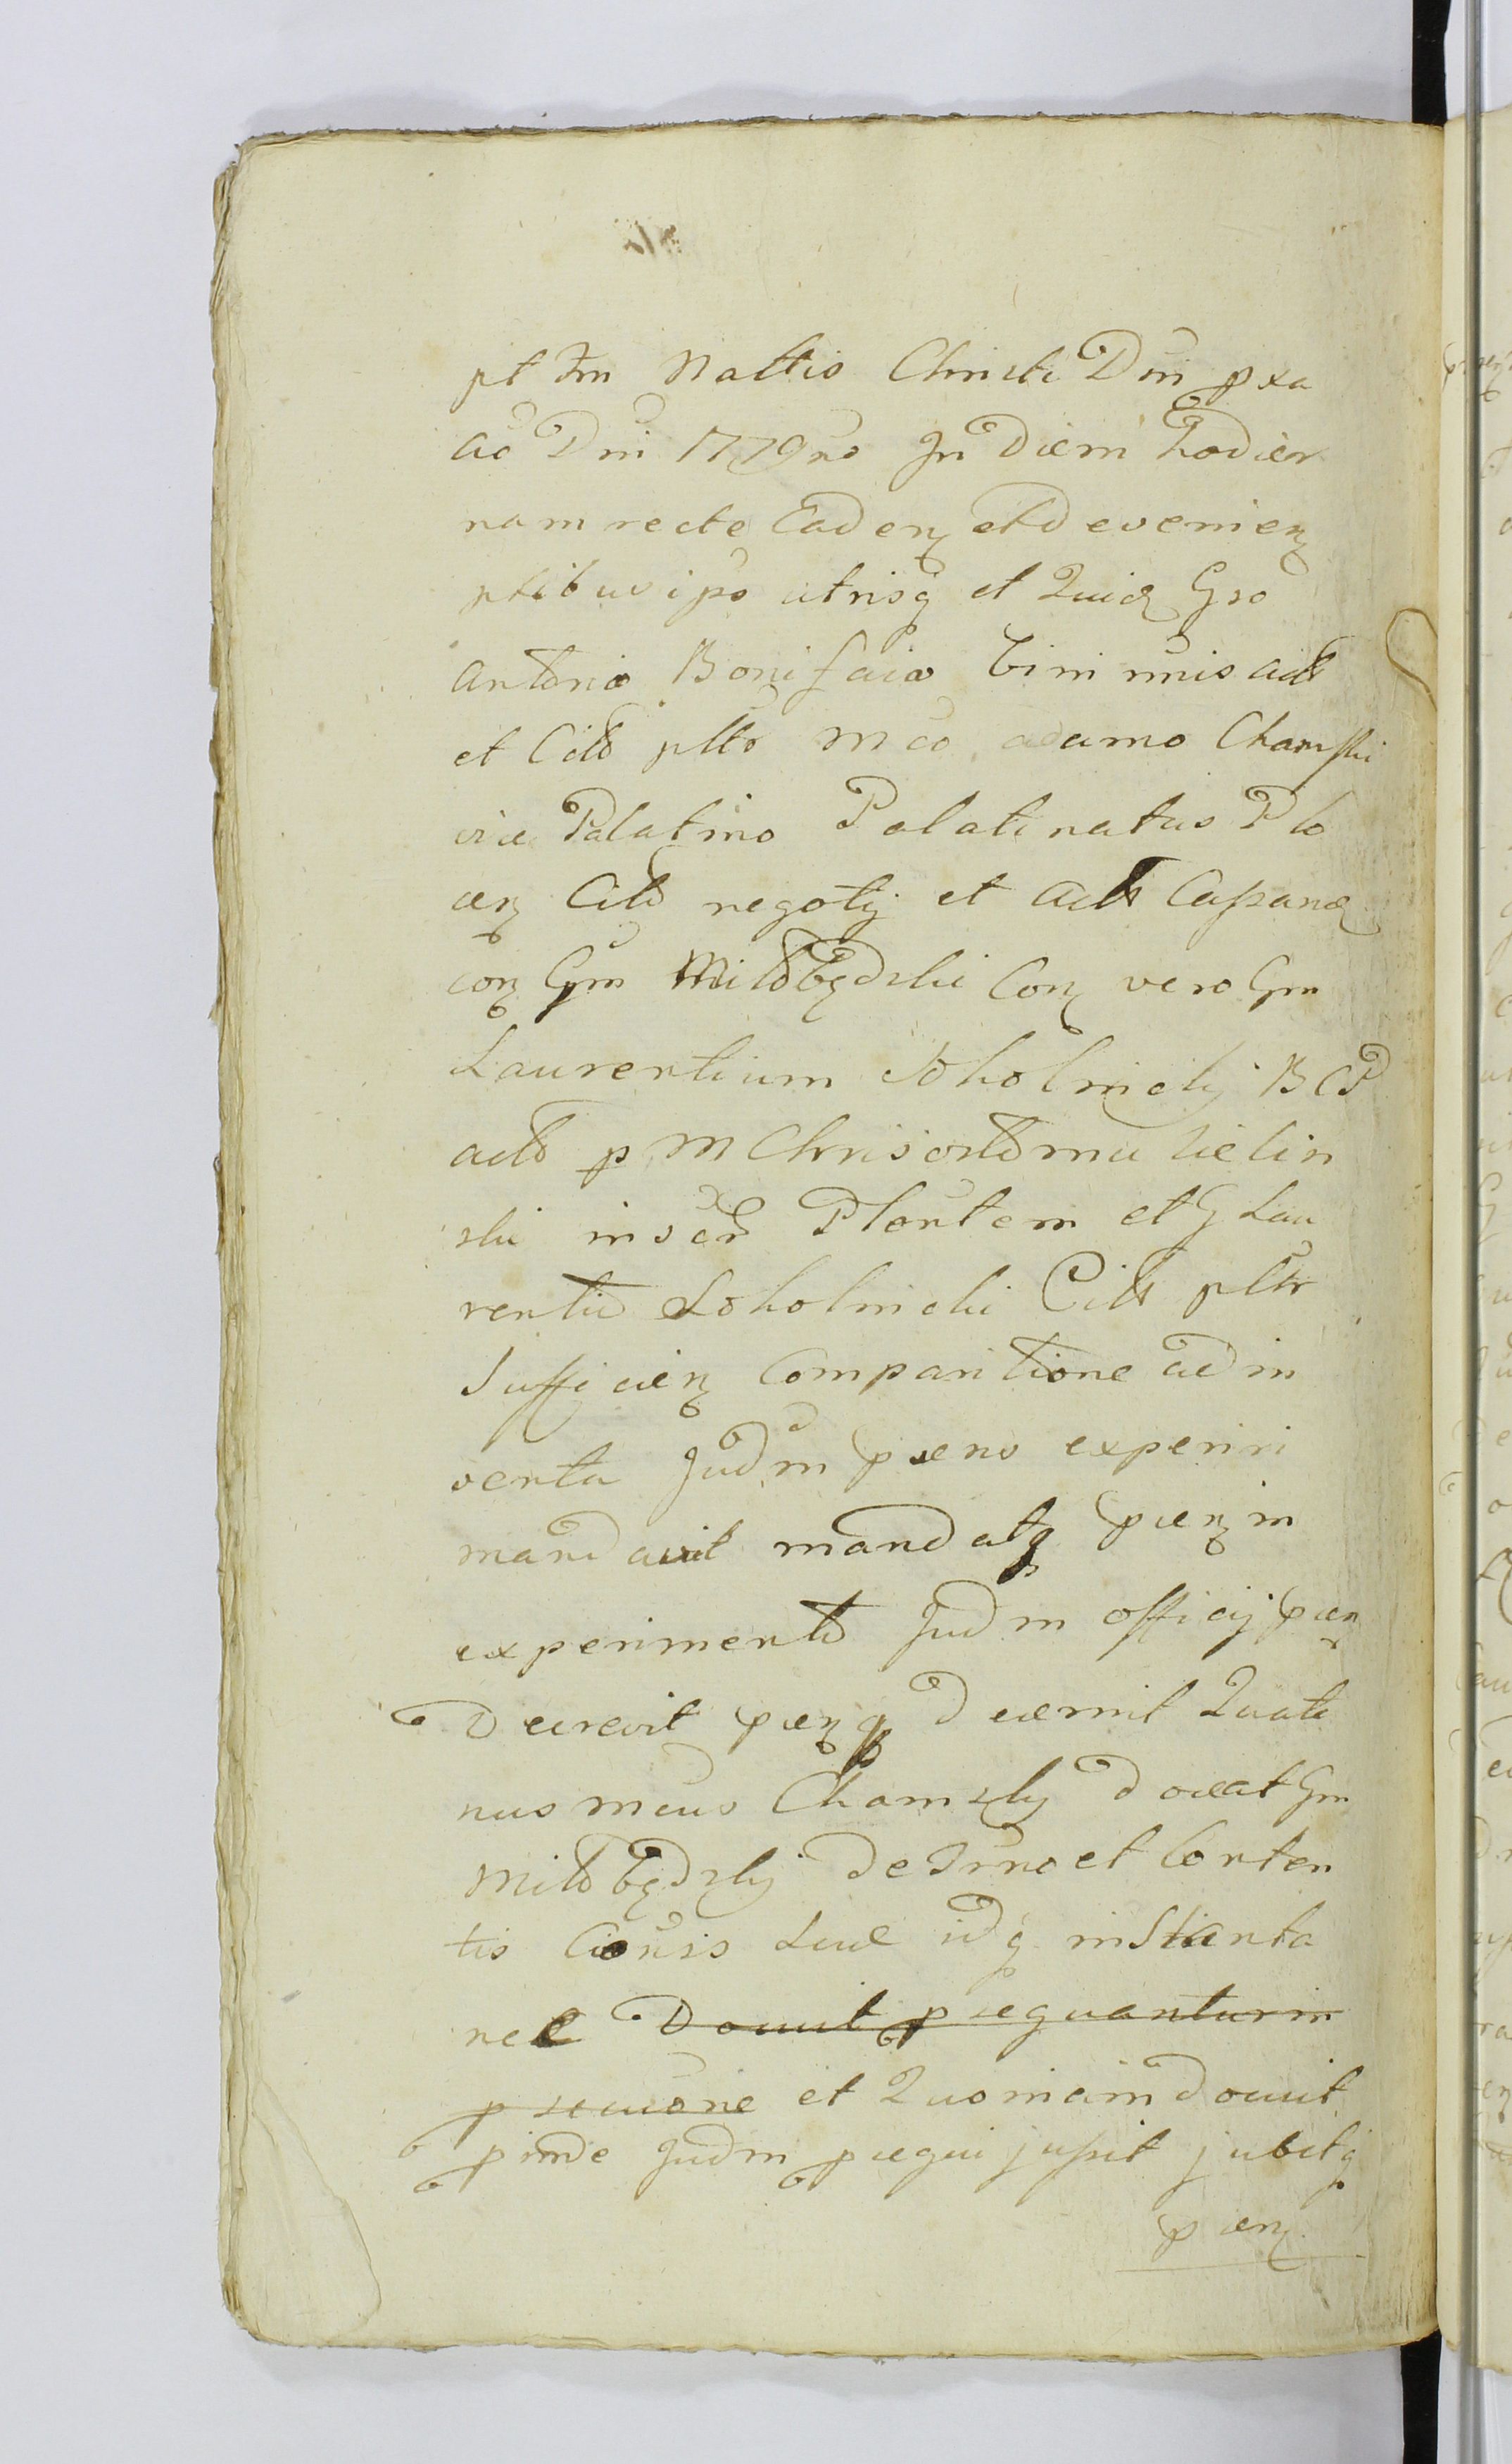 pt Fm Nattis Christi Dni pxa
ao Dni 1779no In Diem hodier
nam recte Cadenz et devenienz
ptibus ipis utrisq et Quid Gso
Antonio Bonifacio
et Citto plttr Mco Adamo Chamski
vice Palatino Palatinatus Plo
cenz Citto negotij et Act
conz Gm Miłobędzki Conz vero Gm
Laurentium Sokolnicky BCP
acto p M Chrisostomu Zielin
ski Plocensem et G Lau
rentio Sokolnicki Citt plttr
Sufficienz Comparitione ad in
venta Judm pxens experiri
mandavit mandatq pxenz in
experimento Judm officij pxenz
Decrevit pxenzq decernit Quate
nus Mcus Chamsky doceat Gm
Miłobędzky de Trmo et Conten
tis Citonis Suae idq instanta
nee Docuit psequantur in
psecuone et Quoniam docuit
pinde Judm psequi jussit jubetq
pxenz